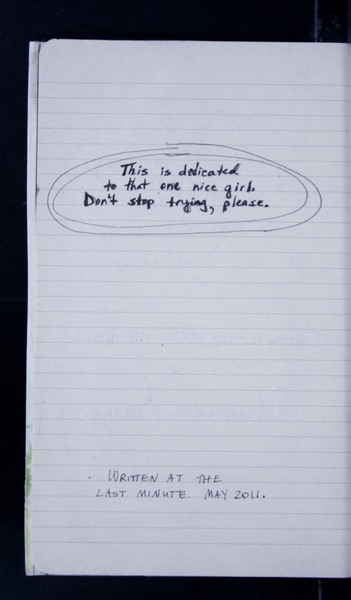 This is dedicated
to that one nice girl.
Don't stop trying, please.
WRITTEN AT THE
LAST MINUTE. MAY 2011.